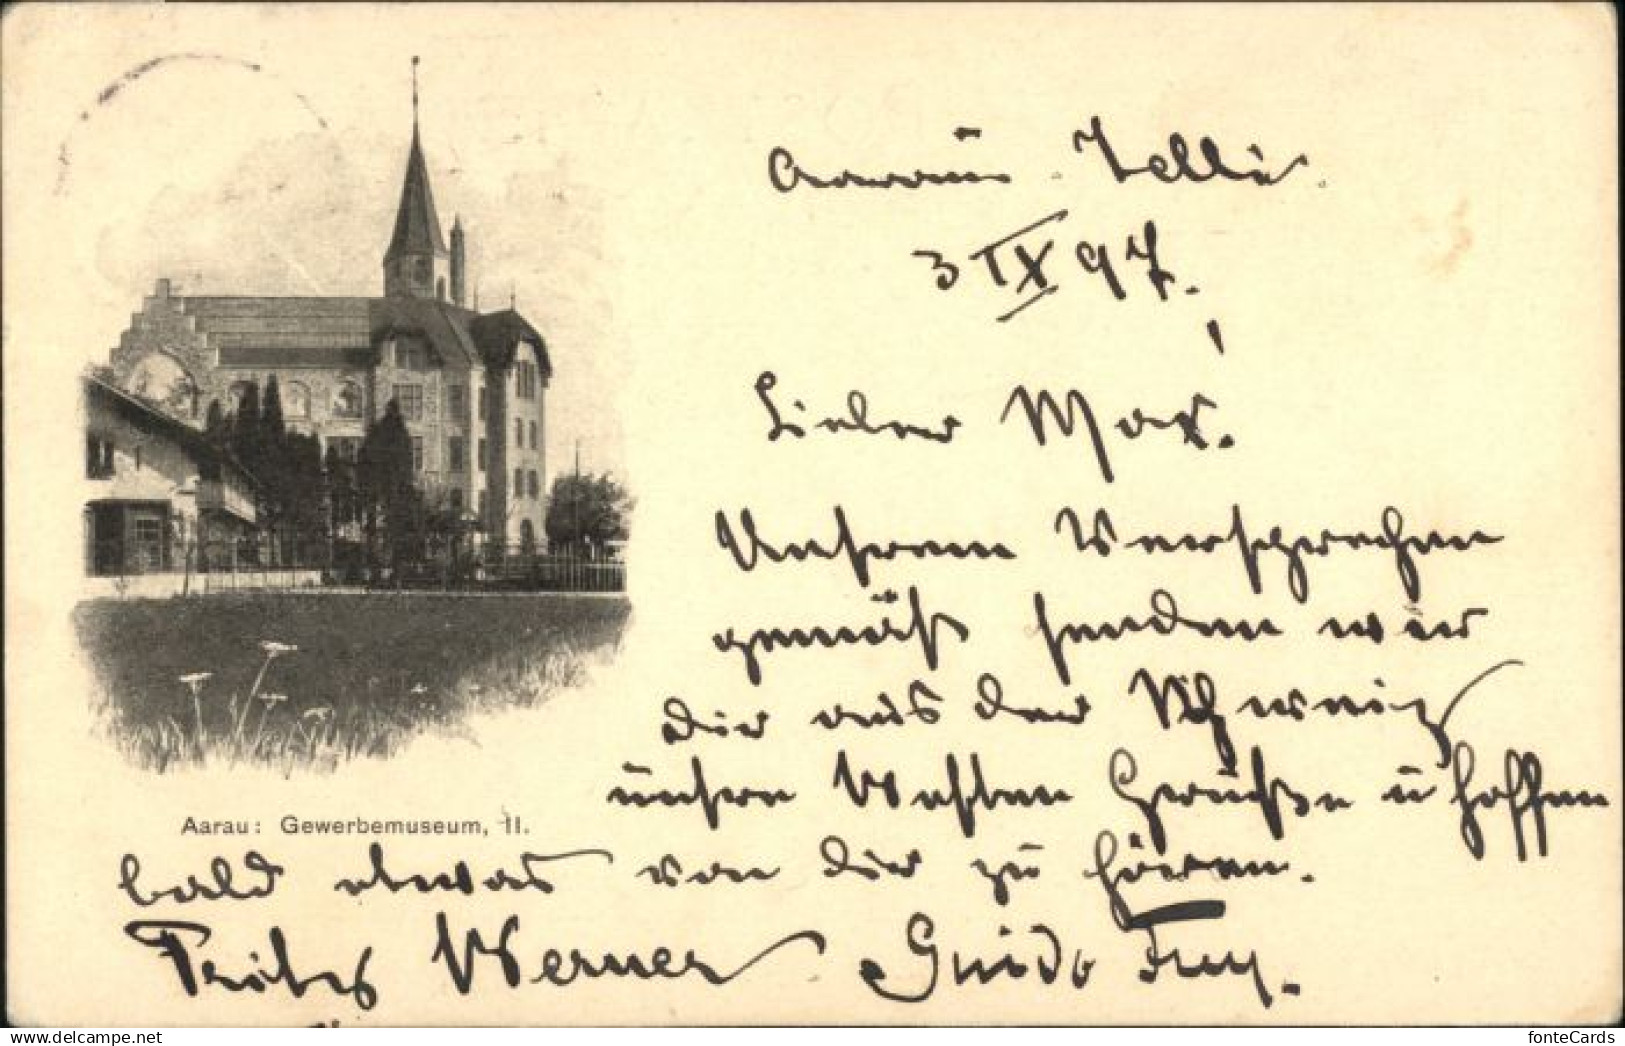 Aarau. Telli.
3 IX 97.
Lieber Max.
Unserem Versprechen
gemäß senden wir
Dir aus der Schweiz
unsere besten Grüße u hoffen
Aarau: Gewerbemuseum, II.
bald etwas von Dir zu hören.
Werner Guido Frey.
delcampe.net
fonteCards